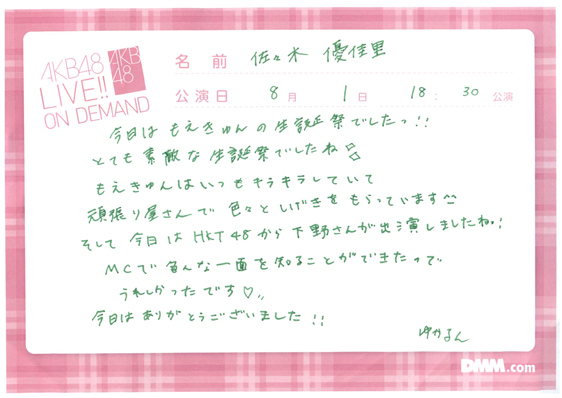 AKB48
LIVE!!
ON DEMAND
AKB
48
名前 佐々木 優佳里
公演日 8月 1日 18:30 公演
今日はもえきゅんの生誕祭でしたっ!!
とても素敵な生誕祭でしたね
もえきゅんはいつもキラキラしていて
頑張り屋さんで色々としげきをもらっています^^
そして今日はHKT48から下野さんが出演しましたね!
MCで色んな一面を知ることができたので
うれしかったです♡
今日はありがとうございました!!
ゆかるん
DMM.com